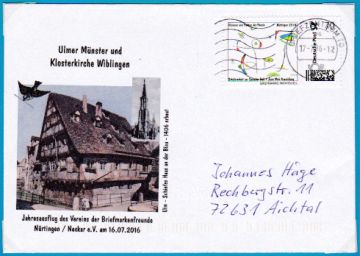 Ulmer Münster und
Klosterkirche Wiblingen
Deutsche Post
Ulm - Schiefes Haus an der Blau - 1406 erbaut
Johannes Häge
Rechbergstr. 11
72631 Aichtal
Jahresausflug des Vereins der Briefmarkenfreunde
Nürtingen / Neckar e.V. am 16.07.2016